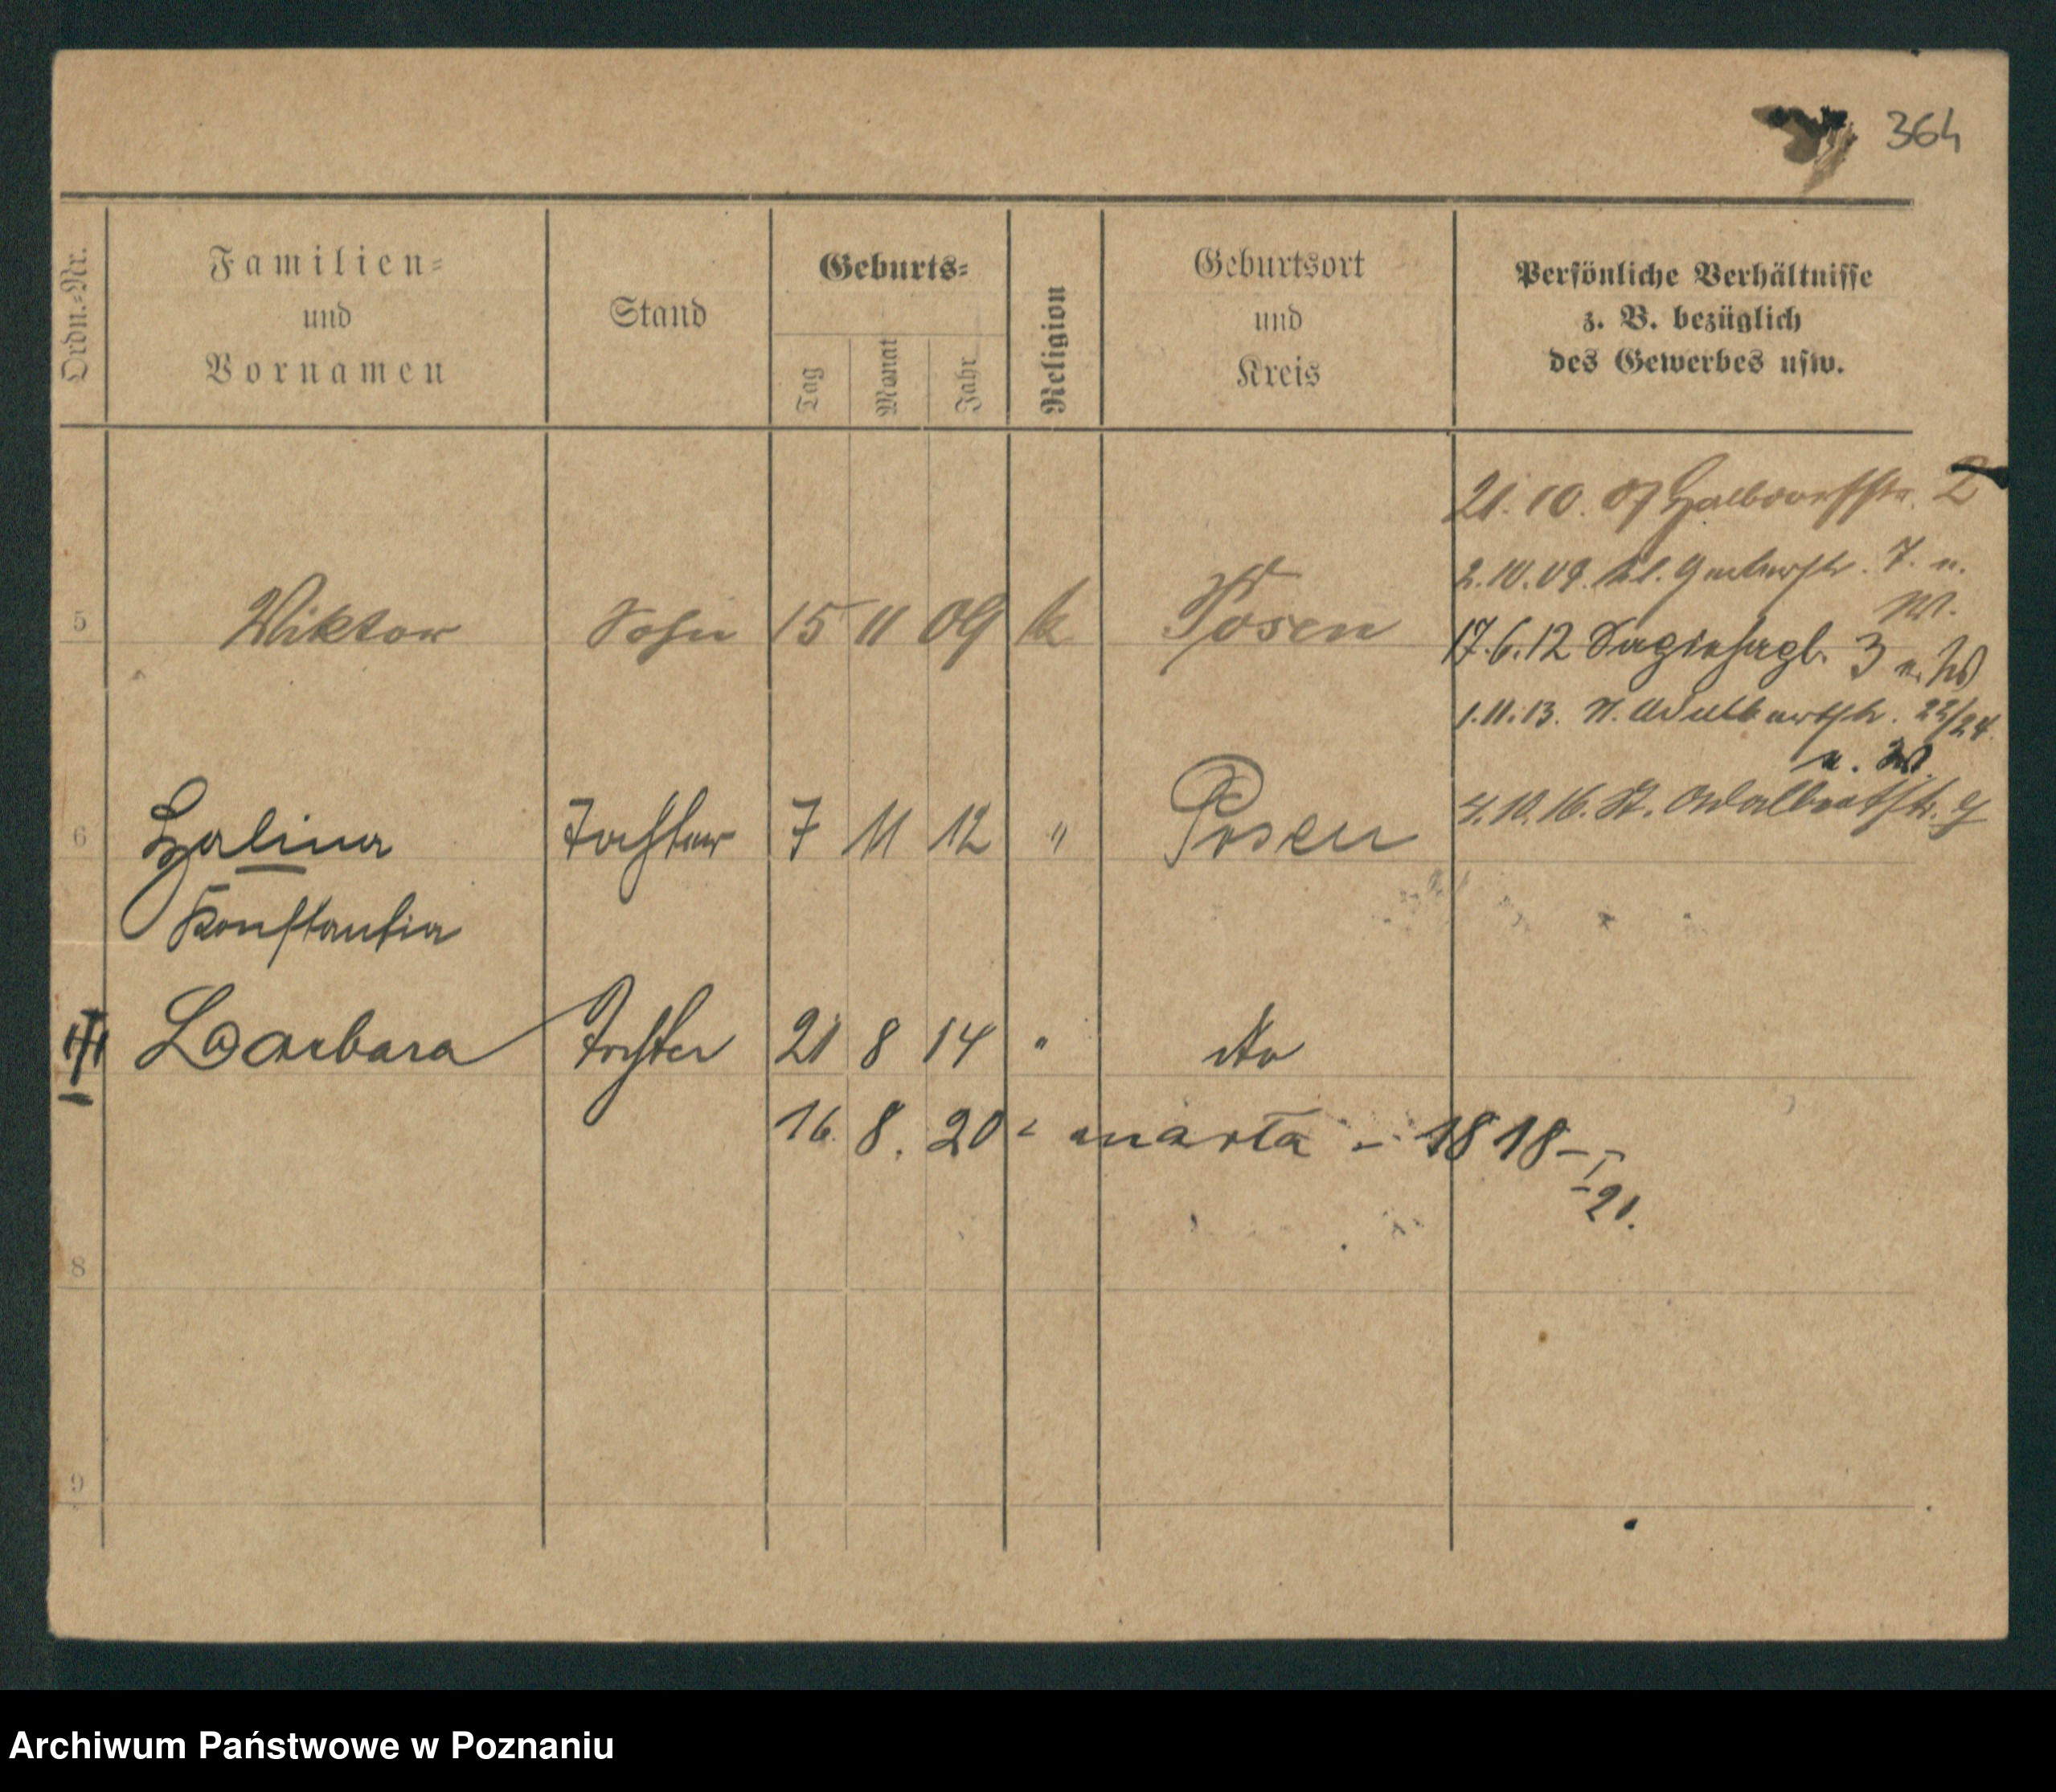 364
Ordn.-Nr.
Familien-
und
Vornamen
Stand
Geburts-
Tag
Monat
Jahr
Religion
Geburtsort
und
Kreis
Persönliche Verhältnisse
z. B. bezüglich
des Gewerbes usw.
21. 10. 07 Halbdorfstr. 2
2.10.09. kl. Gerberstr. 7. u.
W.
5 Wiktor Sohn 15 11 09 k Posen
17.6.12 3 u. W
1.11.13. St. Adalbertstr. 23/24
u. W.
6 Halina Tochter 7 11 12 " Posen
4.10.16. St. Adalbertstr. 9
Konstantia
Barbara Tochter 21 8 14 " dto
16. 8. 20 - marta - 1818 - I
-21.
8
9
Archiwum Państwowe w Poznaniu